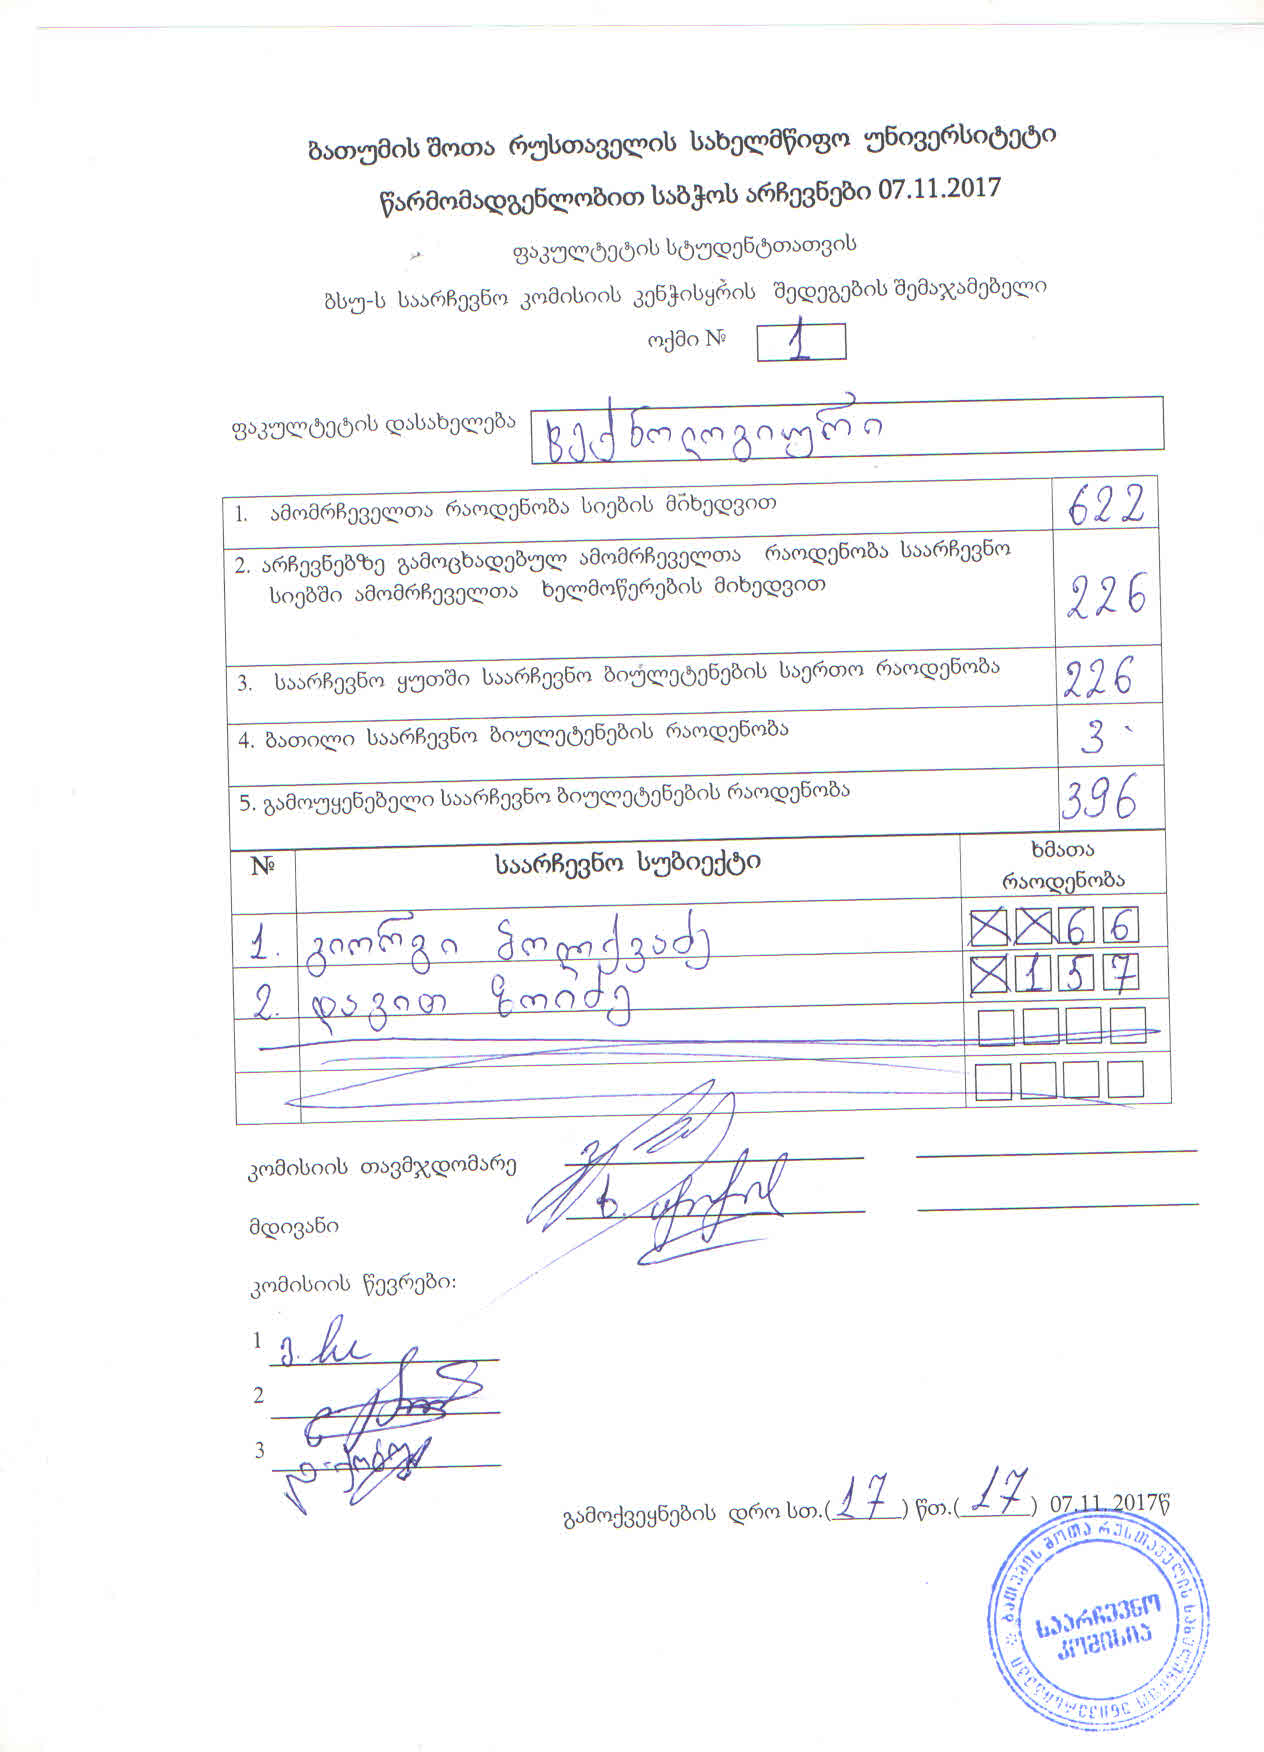 ბათუმის შოთა რუსთაველის სახელმწიფო უნივერსიტეტი
წარმომადგენლობით საბჭოს არჩევნები 07.11.2017
ფაკულტეტის სტუდენტთათვის
ბსუ-ს საარჩევნო კომისიის კენჭისყრის შედეგების შემაჯამებელი
ოქმი № 1
ფაკულტეტის დასახელება ტექნოლოგიური
1. ამომრჩეველთა რაოდენობა სიების მიხედვით 622
2. არჩევნებზე გამოცხადებულ ამომრჩეველთა რაოდენობა საარჩევნო
სიებში ამომრჩეველთა ხელმოწერების მიხედვით 226
3. საარჩევნო ყუთში საარჩევნო ბიულეტენების საერთო რაოდენობა 226
4. ბათილი საარჩევნო ბიულეტენების რაოდენობა 3
5. გამოუყენებელი საარჩევნო ბიულეტენების რაოდენობა 396
№ საარჩევნო სუბიექტი ხმათა
რაოდენობა
1. გიორგი ბოლქვაძე 66
2. დავით ზოიძე 157
კომისიის თავმჯდომარე
მდივანი
კომისიის წევრები:
1
2
3
გამოქვეყნების დრო სთ.(17) წთ.(17) 07.11.2017წ
ბათუმის შოთა რუსთაველის სახელმწიფო უნივერსიტეტი
საარჩევნო
კომისია